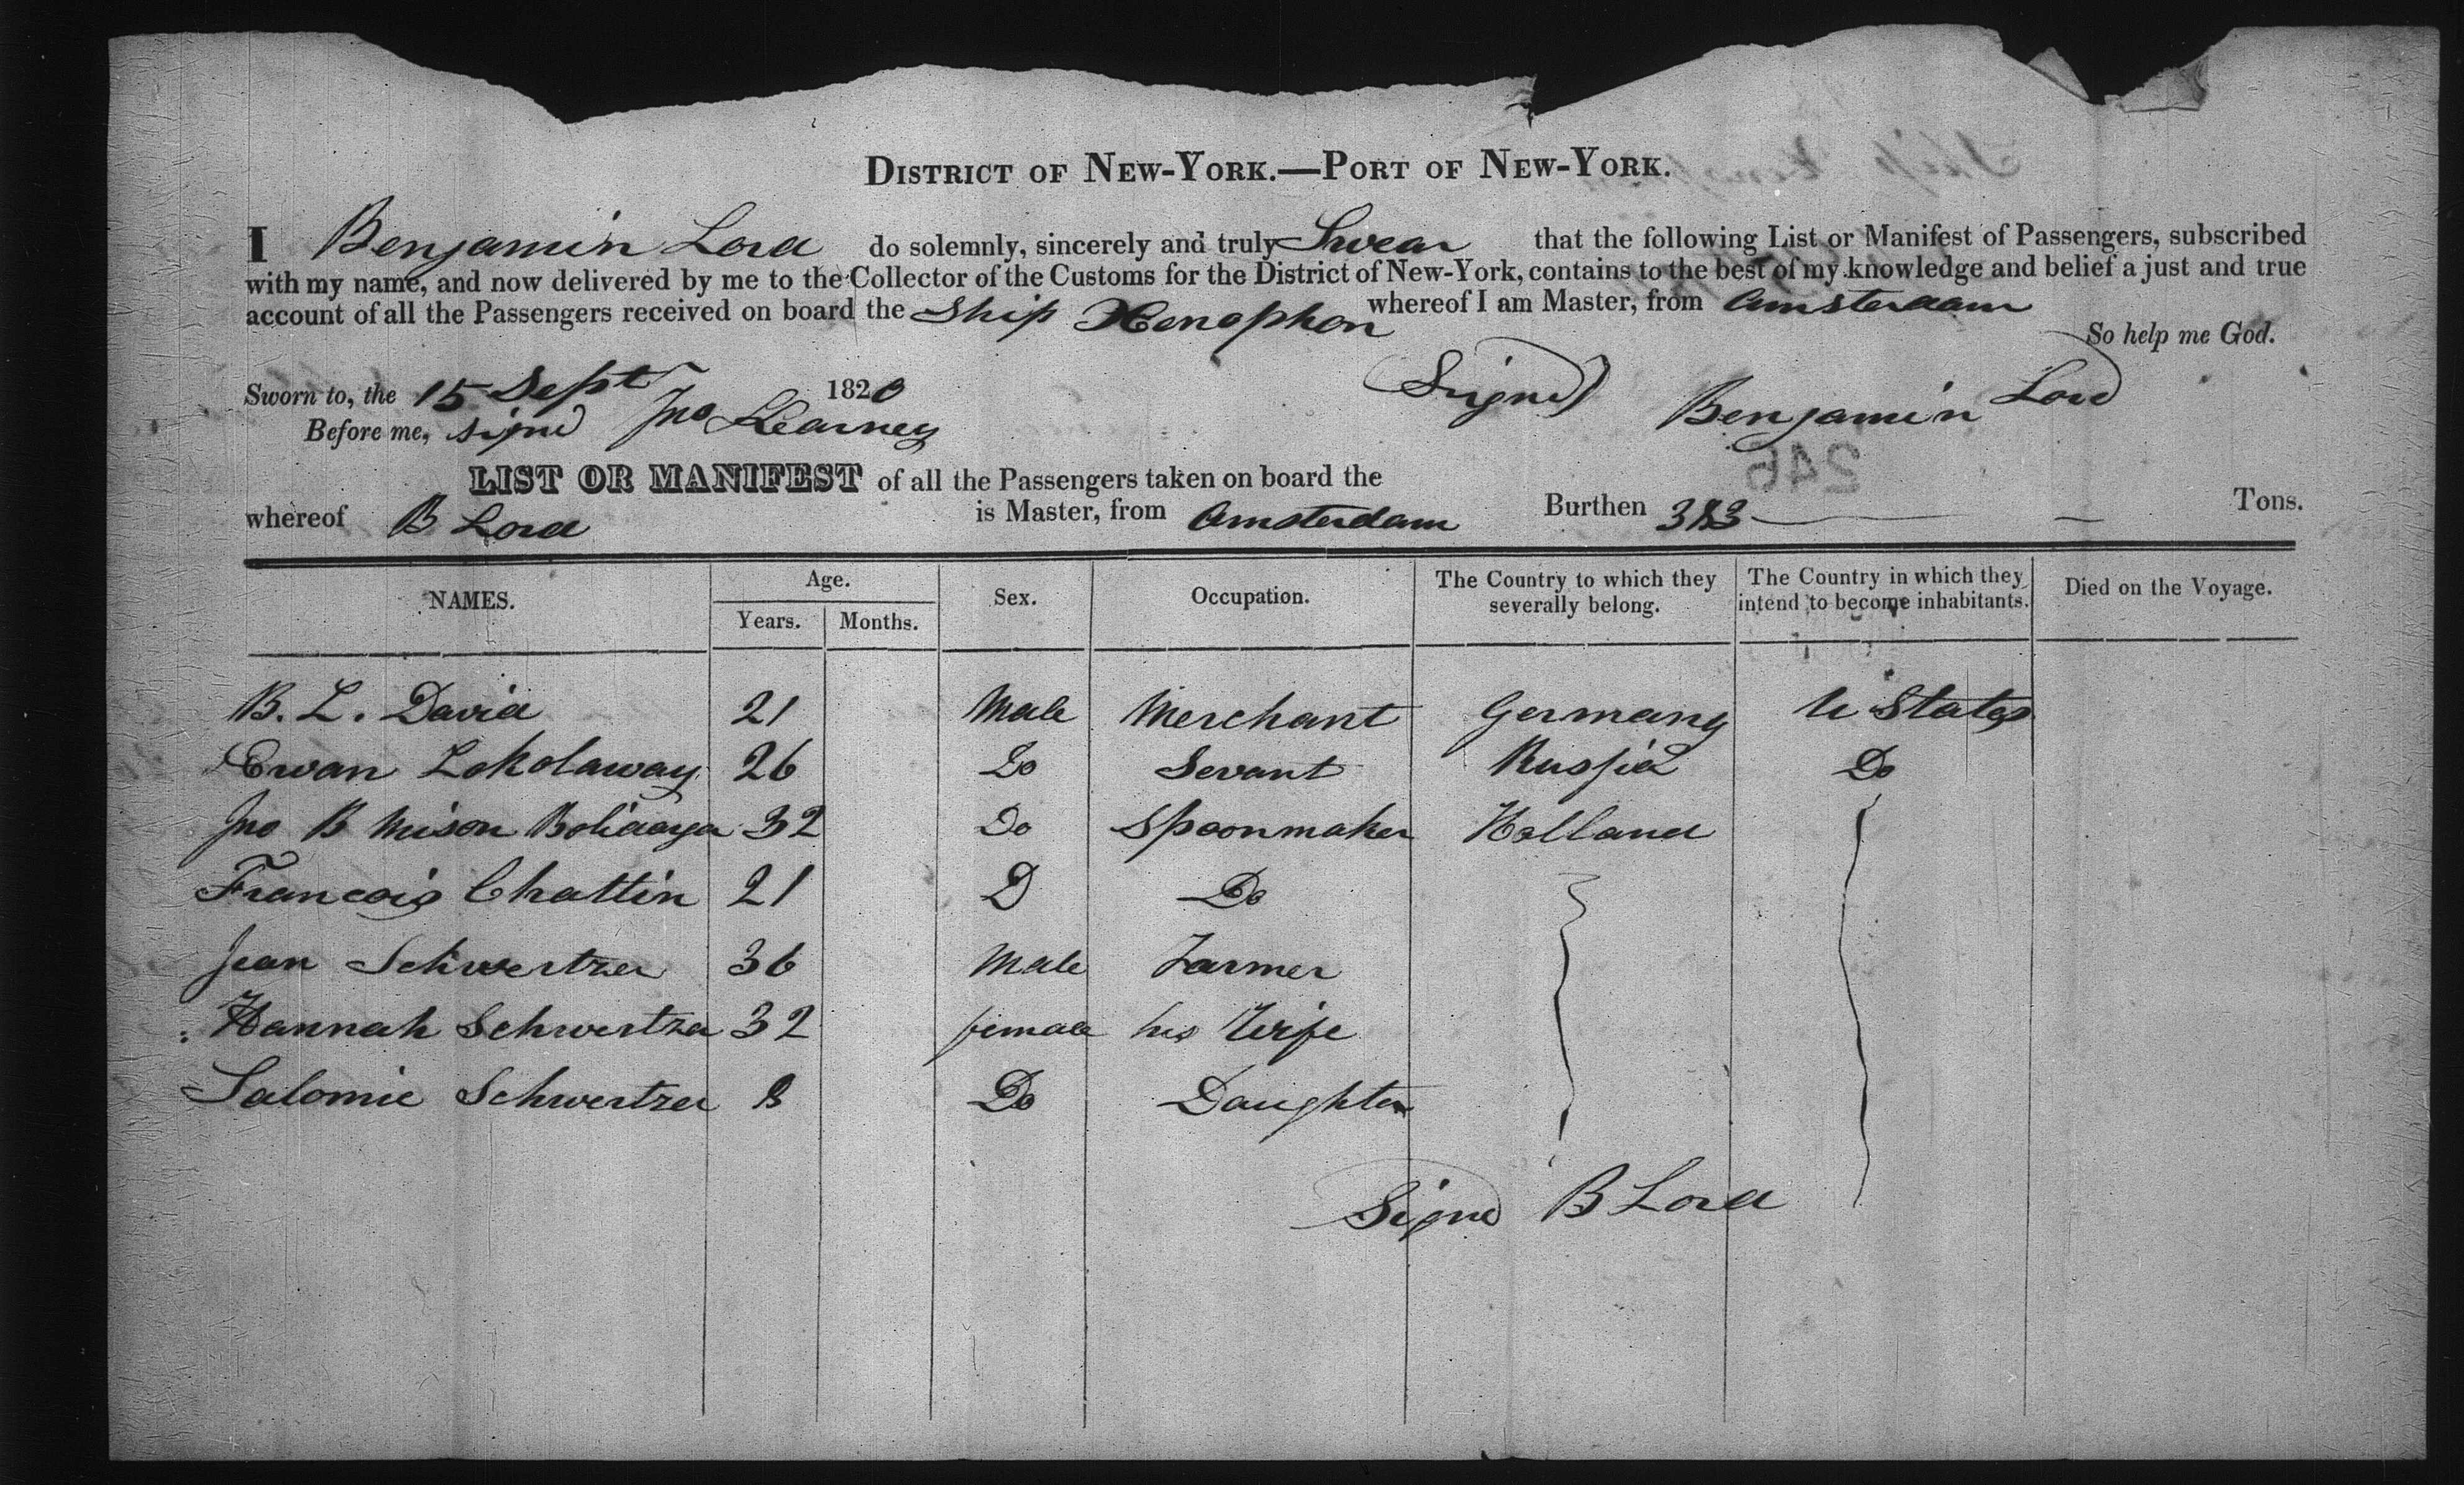 DISTRICT OF NEW-YORK.—PORT OF NEW-YORK.
I Benjamin Lord do solemnly, sincerely and truly Swear that the following List or Manifest of Passengers, subscribed
with my name, and now delivered by me to the Collector of the Customs for the District of New-York, contains to the best of my knowledge and belief a just and true
account of all the Passengers received on board the Ship Xenophon whereof I am Master, from Amsterdam
So help me God.
Sworn to, the 15 Sept 1820 (Signd) Benjamin Lord
Before me, signd Jno Kearney
246
LIST OR MANIFEST of all the Passengers taken on board the
whereof B Lord is Master, from Amsterdam Burthen 383 Tons.
NAMES. Age. Years. Months. Sex. Occupation. The Country to which they severally belong. The Country in which they intend to become inhabitants. Died on the Voyage.
B. L. David 21 Male Merchant Germany U States
Ewan Lokolaway 26 Do Sevant Russia Do
Jno B 32 Do Spoonmaker Holland
Francois Chattin 21 D Do
Jean Schwertzer 36 Male Farmer
Hannah Schwertzer 32 female his Wife
Salomie Schwertzer 8 Do Daughter
Signd B Lord